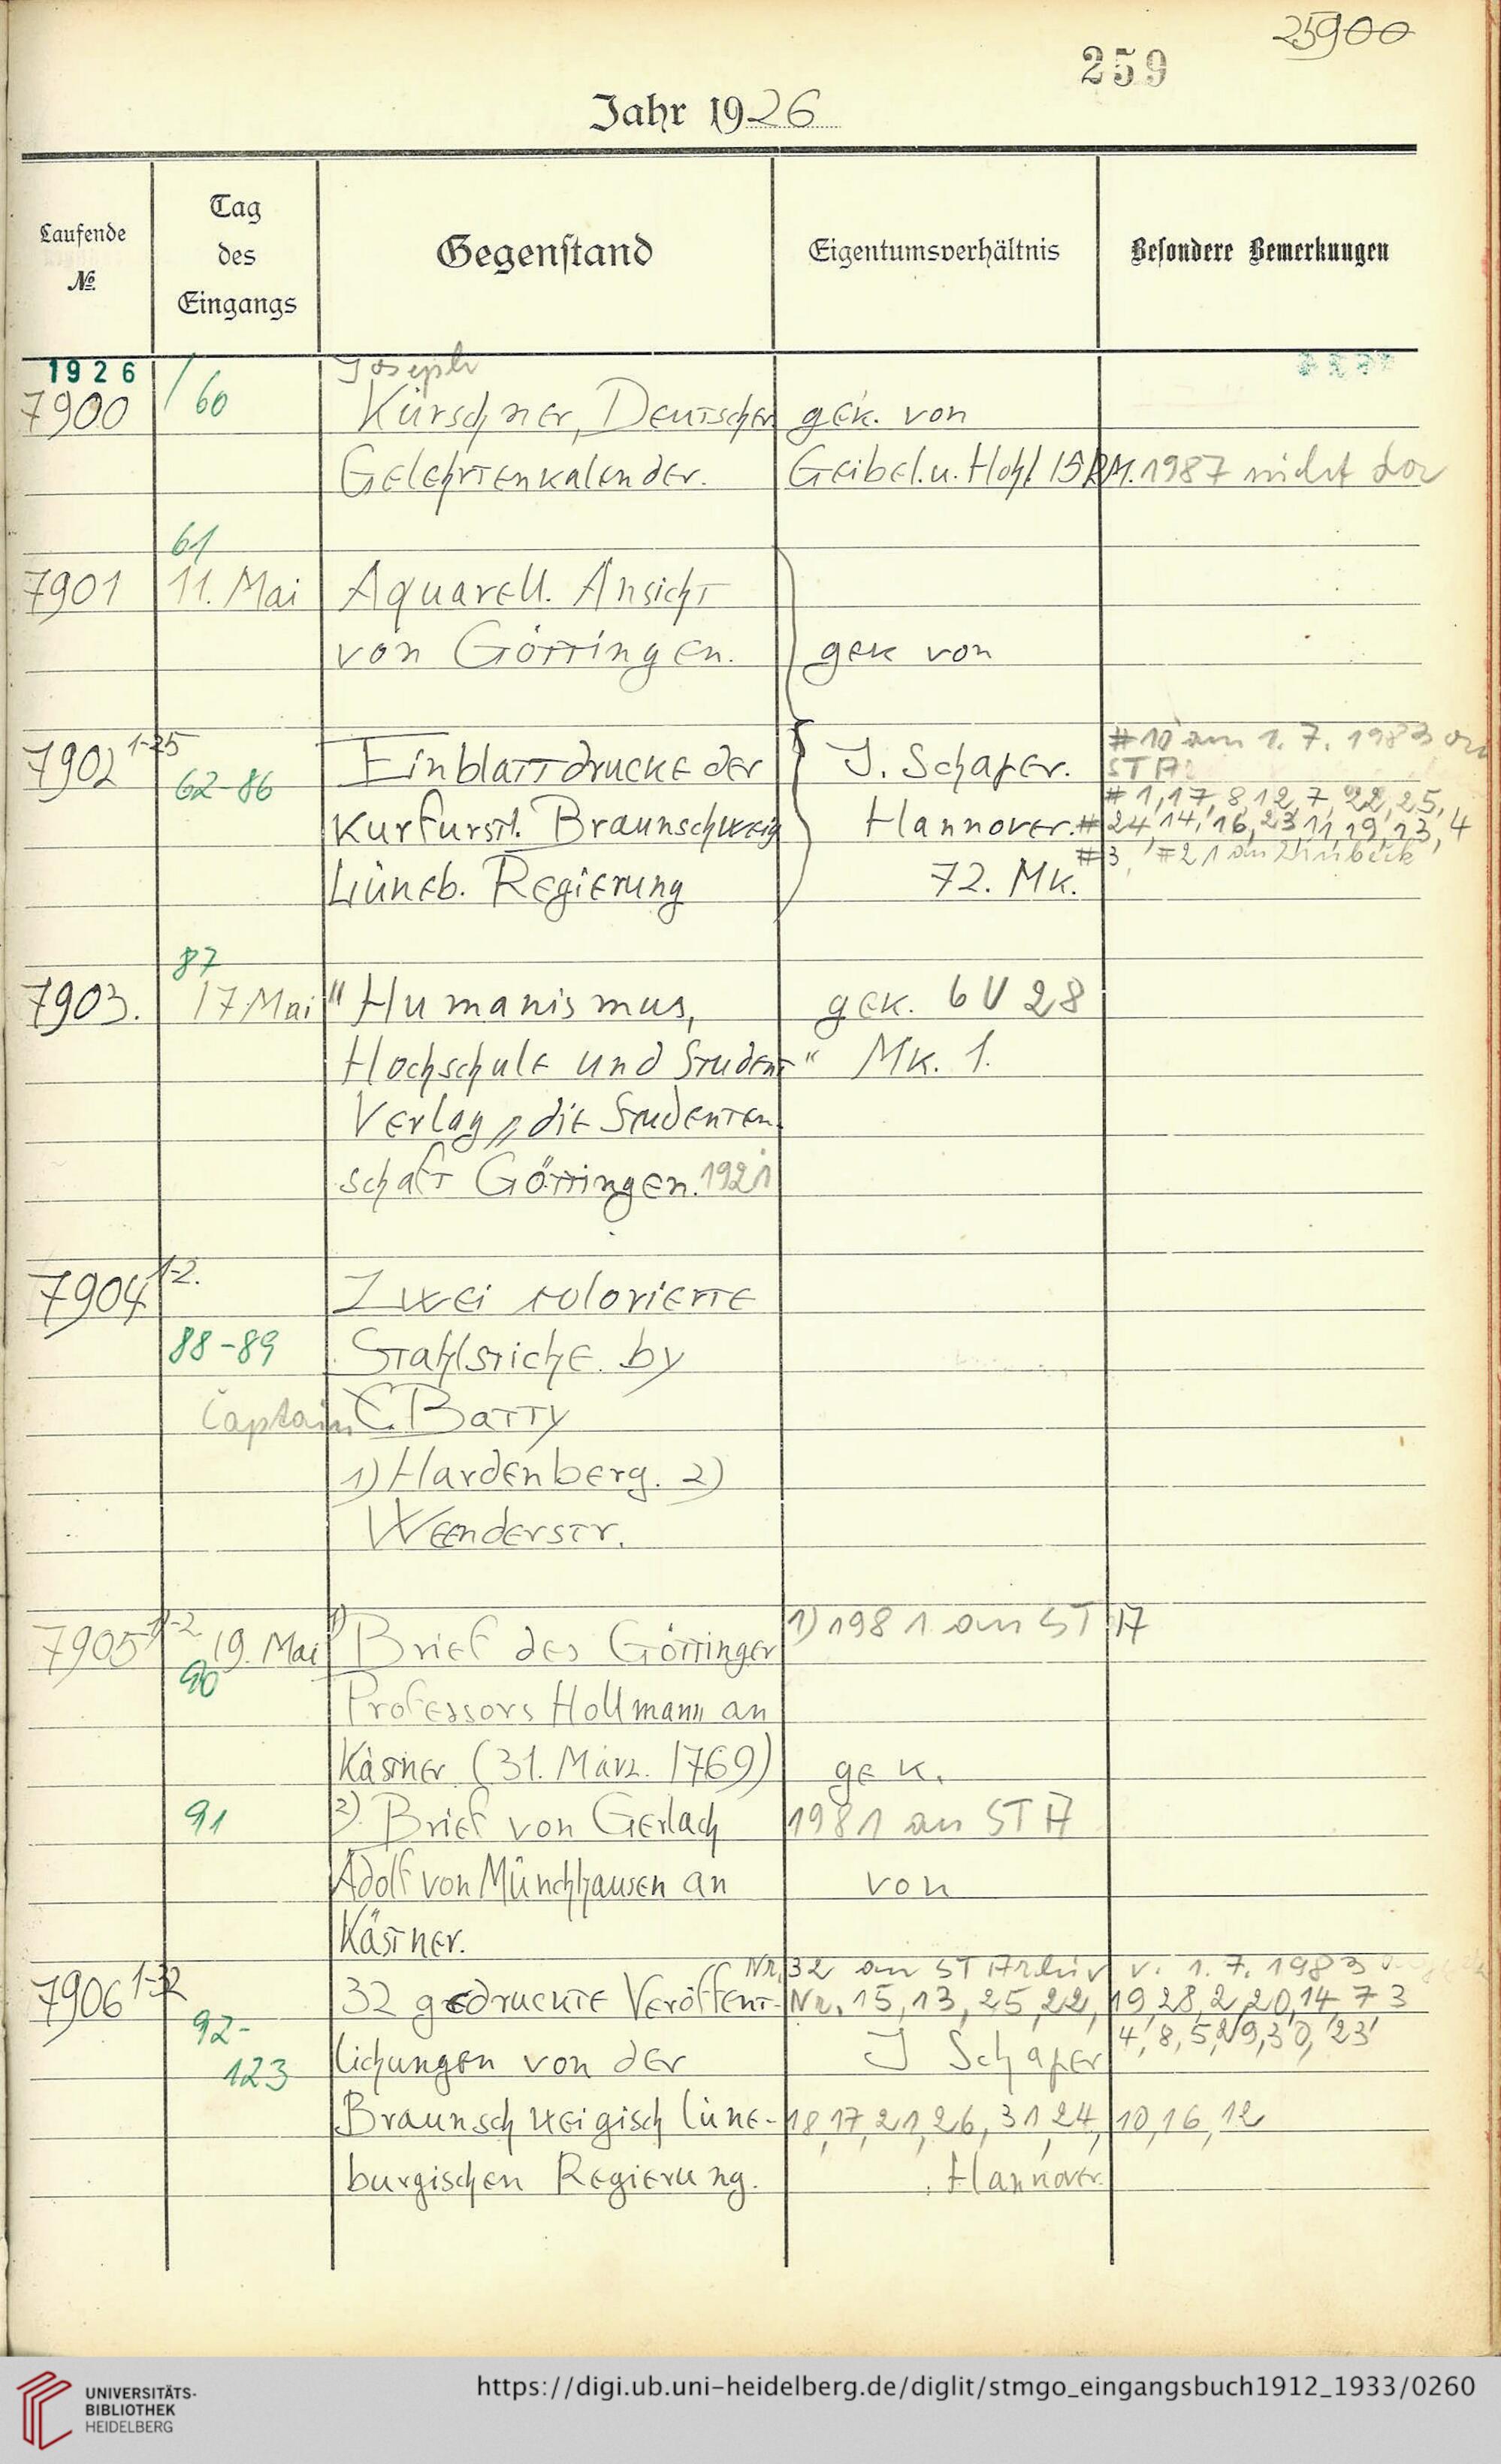 25900
259
Jahr 1926
Laufende
№
Tag
des
Eingangs
Gegenstand
Eigentumsverhältnis
Besondere Bemerkungen
1926
7900
/ 60
Joseph
Kürschner, Deutscher
gek. von
Gelehrtenkalender.
Geibel. u. Hohl 15 RM.
1987 nicht da
61
7901
11. Mai
Aquarell. Ansicht
von Göttingen.
gek von
7902 1-25
62-86
Einblattdrucke der
J. Schaper.
#10 am 1.7.1983 an
STA
Kurfürstl. Braunschweig
Hannover.
#1, 17, 8, 12, 7, 22, 25,
#24, 14, 16, 23, 11, 19, 13, 4
Lüneb. Regierung
72. Mk.
#3, #21 an Einbeck
87
7903.
17 Mai
"Humanismus,
gek. 6 V 28
Hochschule und Student"
Mk. 1.
Verlag "die Studenten
schaft Göttingen. 1921
7904 1-2.
Zwei colorierte
88-89
Stahlstiche by
Captain
C. Batty
1) Hardenberg. 2)
Weenderstr.
7905 1-2
19. Mai
90
1) Brief des Göttinger
1) 1981 an STA
Professors Hollmann an
Kästner (31. März. 1769)
gek.
91
2). Brief von Gerlach
1981 an STA
Adolf von Münchhausen an
von
Kästner.
Nr. 32 an STArchiv v. 1.7.1983
7906 1-32
92-
123
32 gedruckte Veröffent-
Nr. 15, 13, 25, 22, 19, 28, 2, 20, 14, 7 3
4, 8, 5, 29, 30, 23
lichungen von der
J Schaper
Braunschweigisch lüne-
18, 17, 21, 26, 31, 24, 10, 16, 12
burgischen Regierung.
Hannover.
UNIVERSITÄTS-
BIBLIOTHEK
HEIDELBERG
https://digi.ub.uni-heidelberg.de/diglit/stmgo_eingangsbuch1912_1933/0260